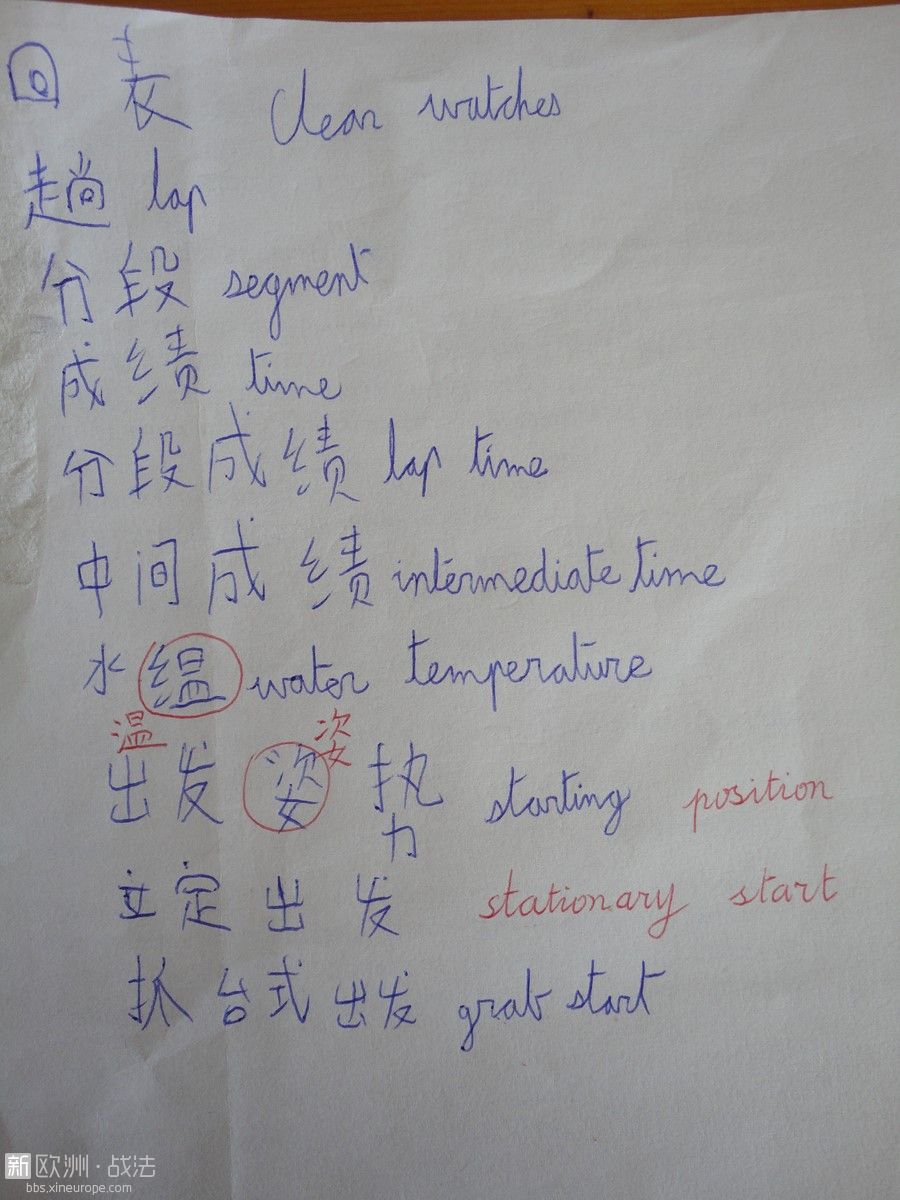 回表 clear watches
趟 lap
分段 segment
成绩 time
分段成绩 lap time
中间成绩 intermediate time
水缊 water temperature
温 姿
出发姿势 starting position
立定出发 stationary start
抓台式出发 grab start
新欧洲·战法
bbs.xineurope.com